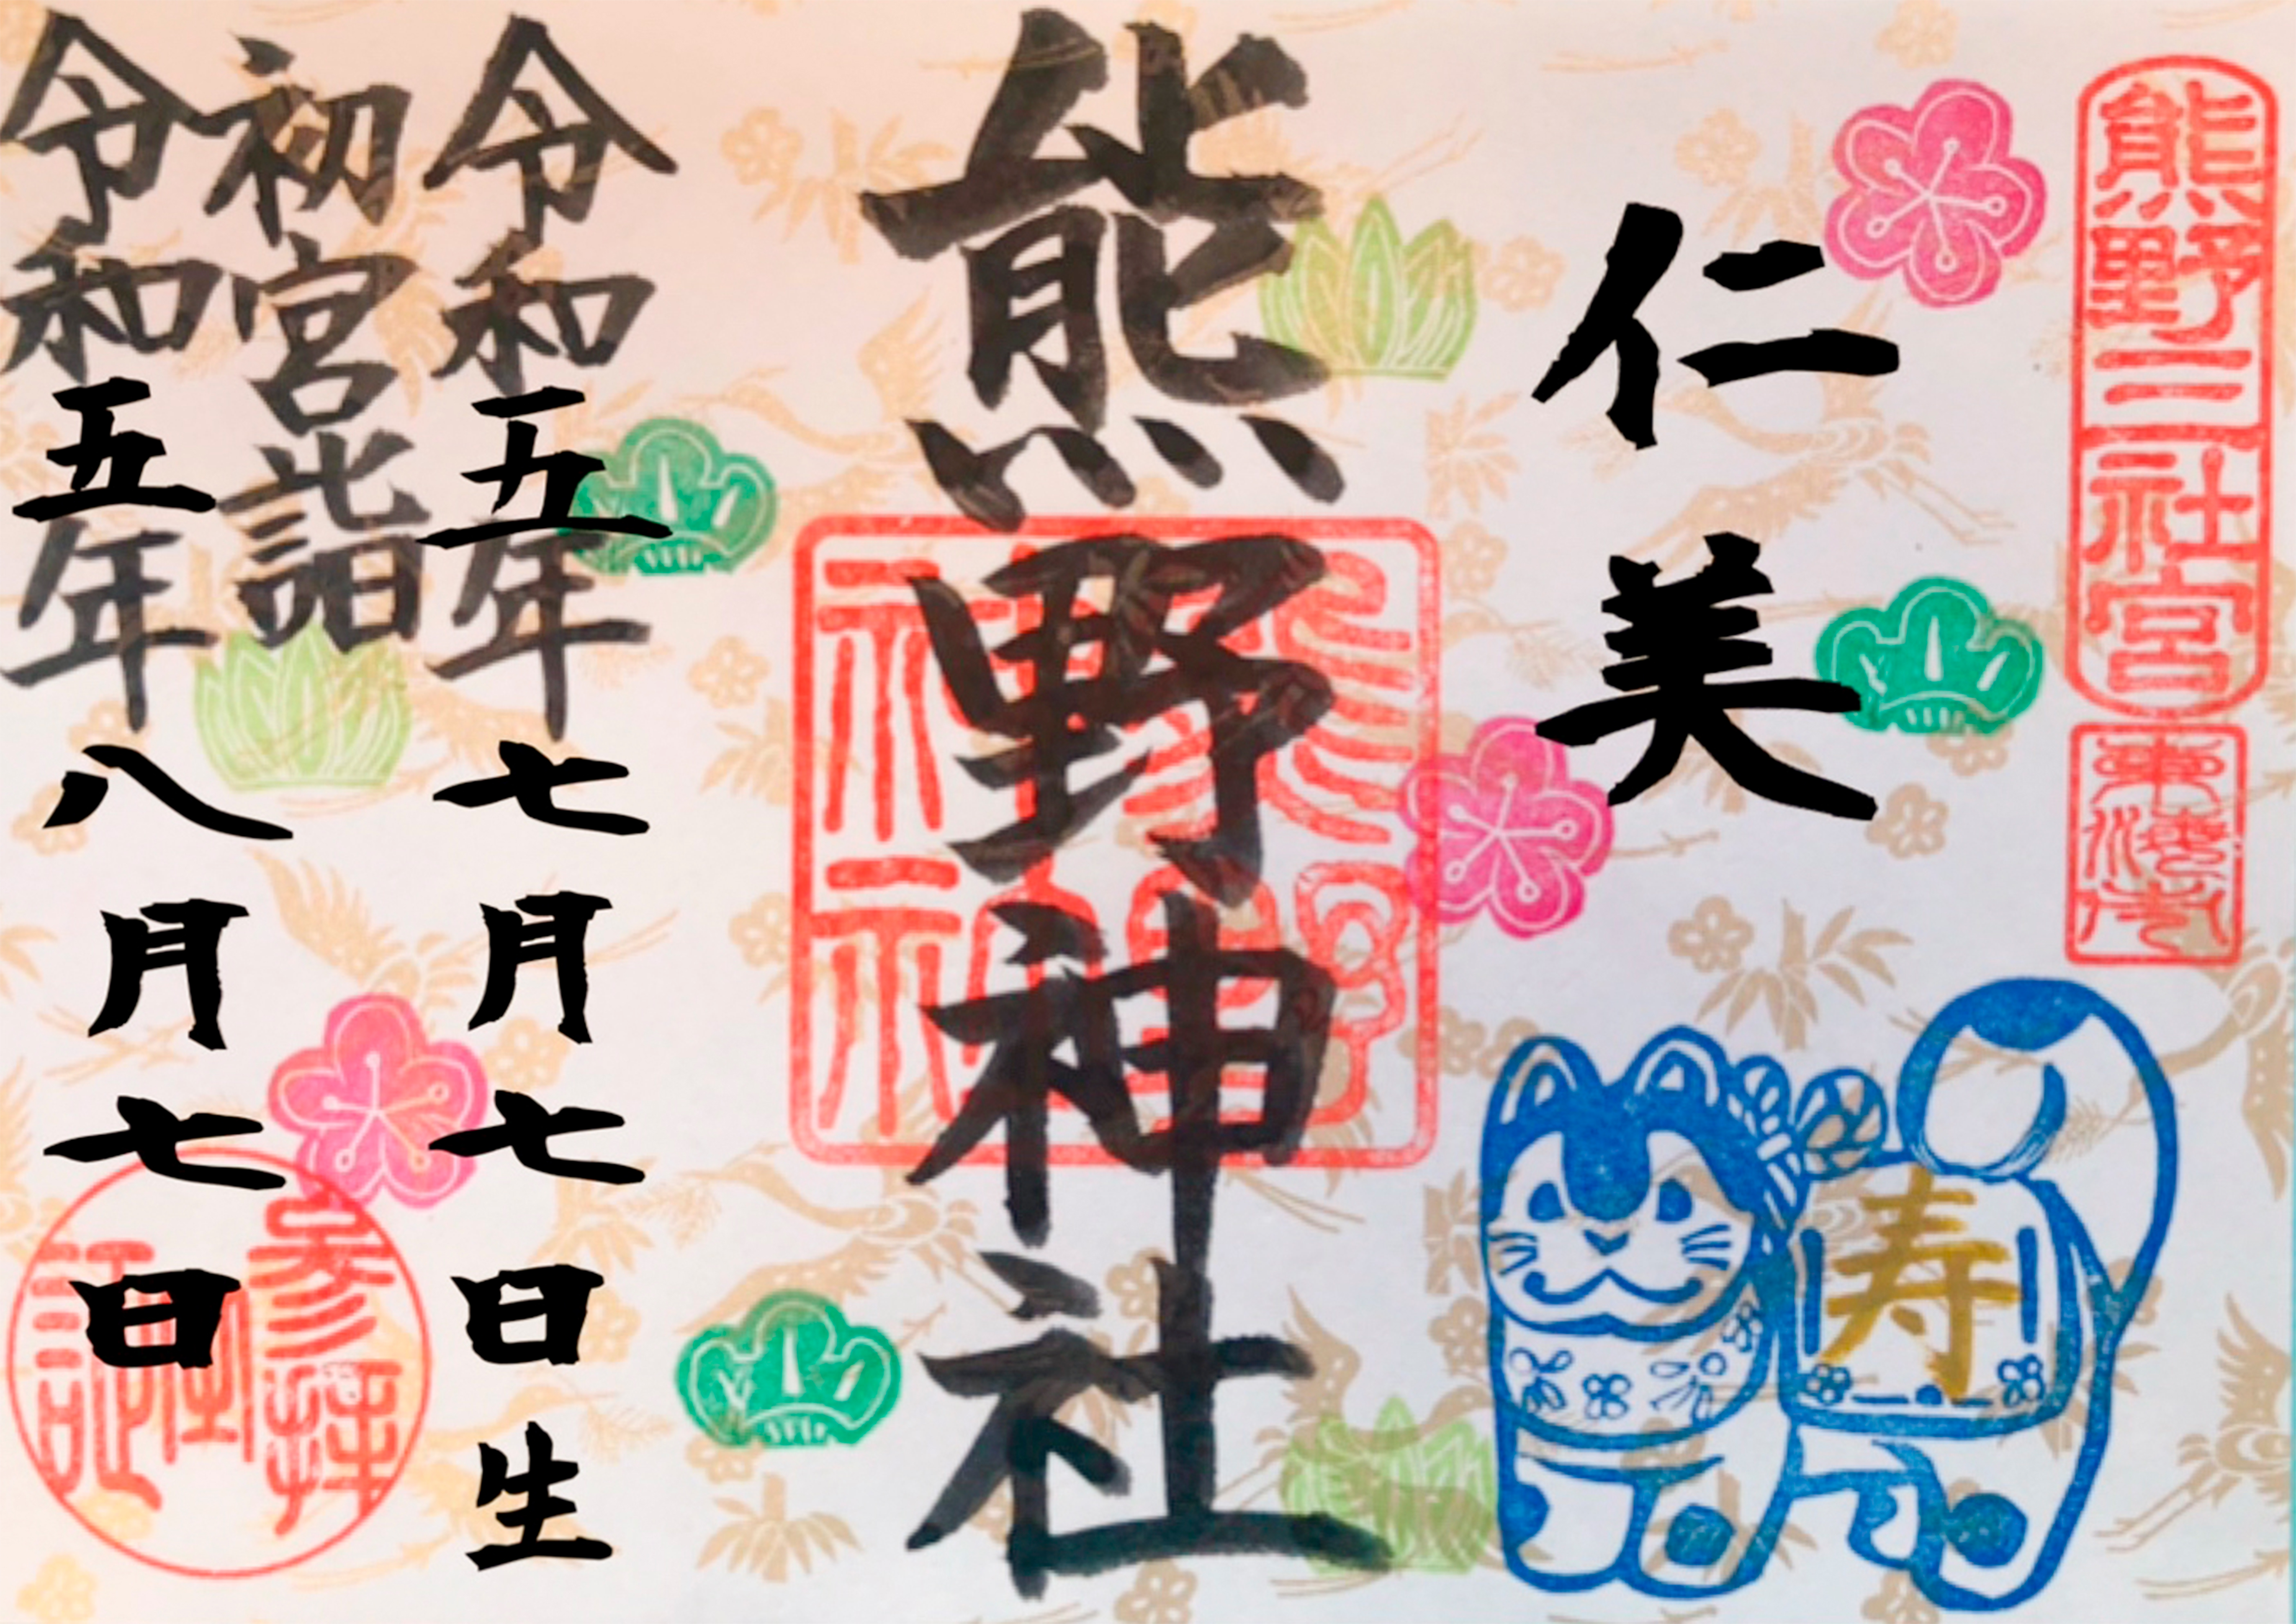 熊野三社宮
東海市
仁美
寿
熊野神社
熊野神社
令和五年七月七日生
初宮詣
令和五年八月七日
参拝之証